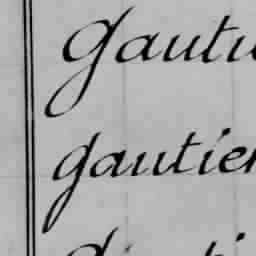 Gautie
gautier